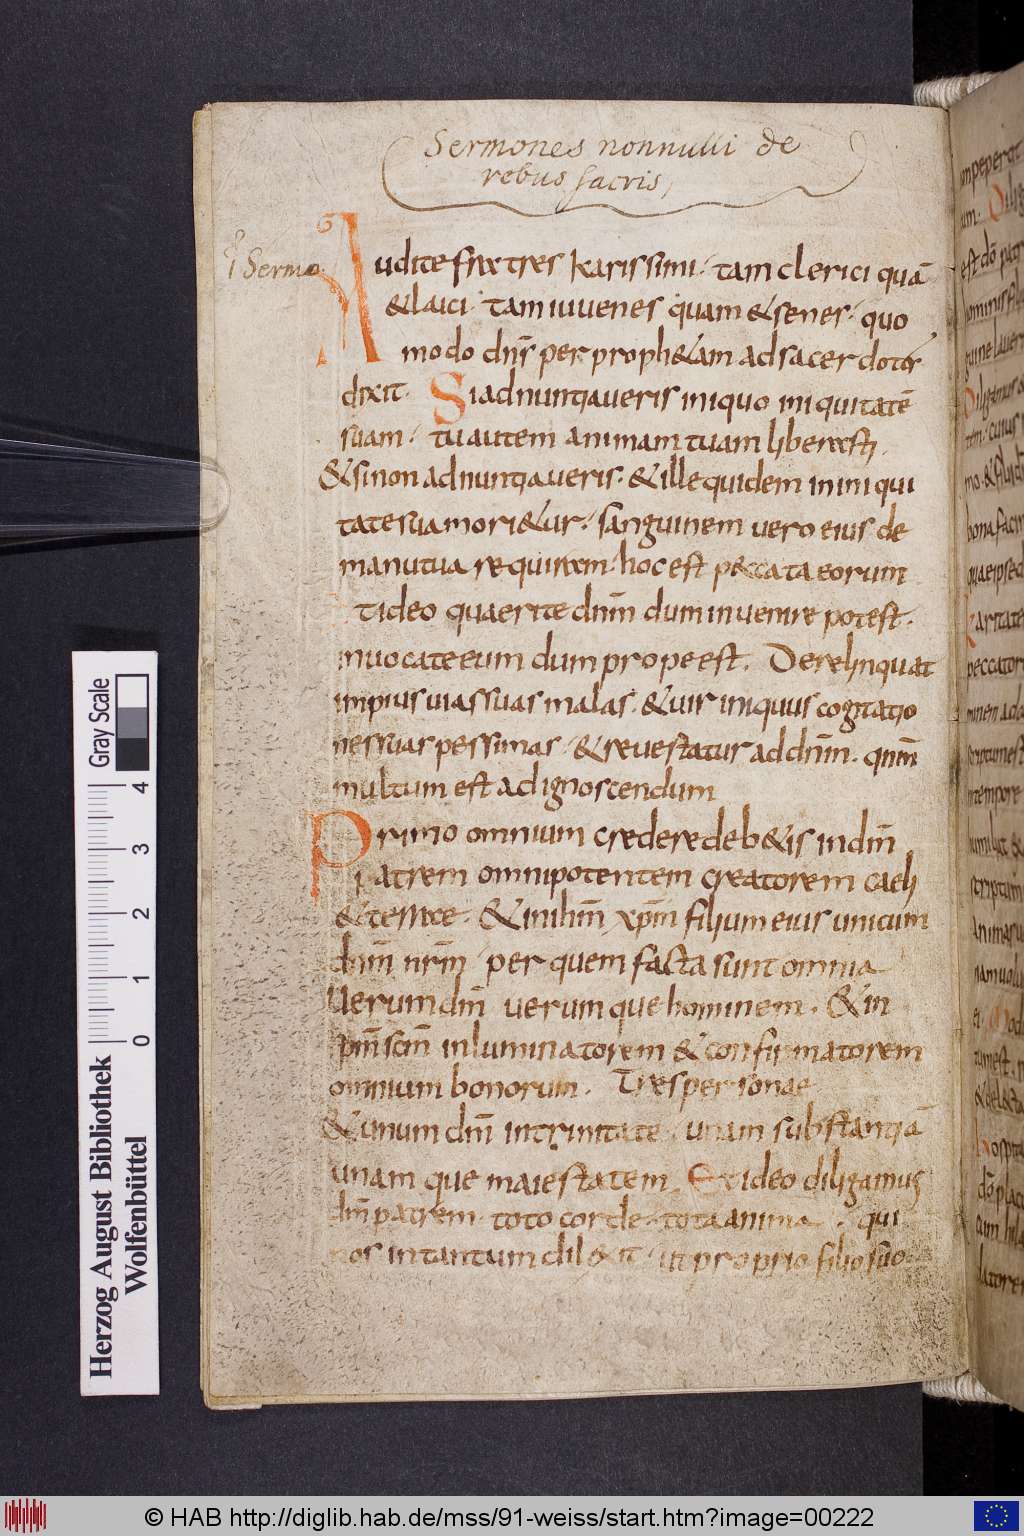 Sermones nonnulli de
rebus sacris,
i Sermo
Audite fratres karissimi · tam clerici quā
& laici · tam iuvenes quam & senes · quo
modo dn̄s per proph&am ad sacerdotes
dixit · Si adnuntiaveris iniquo iniquitatē
suam · tu autem animam tuam liberasti ·
& si non adnuntiaveris · & ille quidem in iniqui
tate sua mori&ur · sanguinem vero eius de
manu tua requiram · hoc est peccata eorum
& ideo quaerite dnm̄ dum invenire potest ·
invocate eum dum prope est · Derelinquat
impius vias suas malas · & vir iniquus cogitatio
nes suas pessimas · & revertatur ad dnm̄ · qnm̄
multum est ad ignoscendum
Primo omnium credere deb&is in dm̄
patrem omnipotentem creatorem caeli
& terrae · & in ihm̄ xpm̄ filium eius unicum
dnm̄ nrm̄ · per quem facta sunt omnia
Verum dm̄ verumque hominem · & in
spm̄ scm̄ inluminatorem & confirmatorem
omnium bonorum · Tres personae
& unum dm̄ in trinitate · unam substantiā
unamque maiestatem · Et ideo diligamus
dm̄ patrem · toto corde · tota anima · qui
nos in tantum dil&it · ut proprio filio suo
Gray Scale
0 1 2 3 4
Herzog August Bibliothek
Wolfenbüttel
© HAB http://diglib.hab.de/mss/91-weiss/start.htm?image=00222